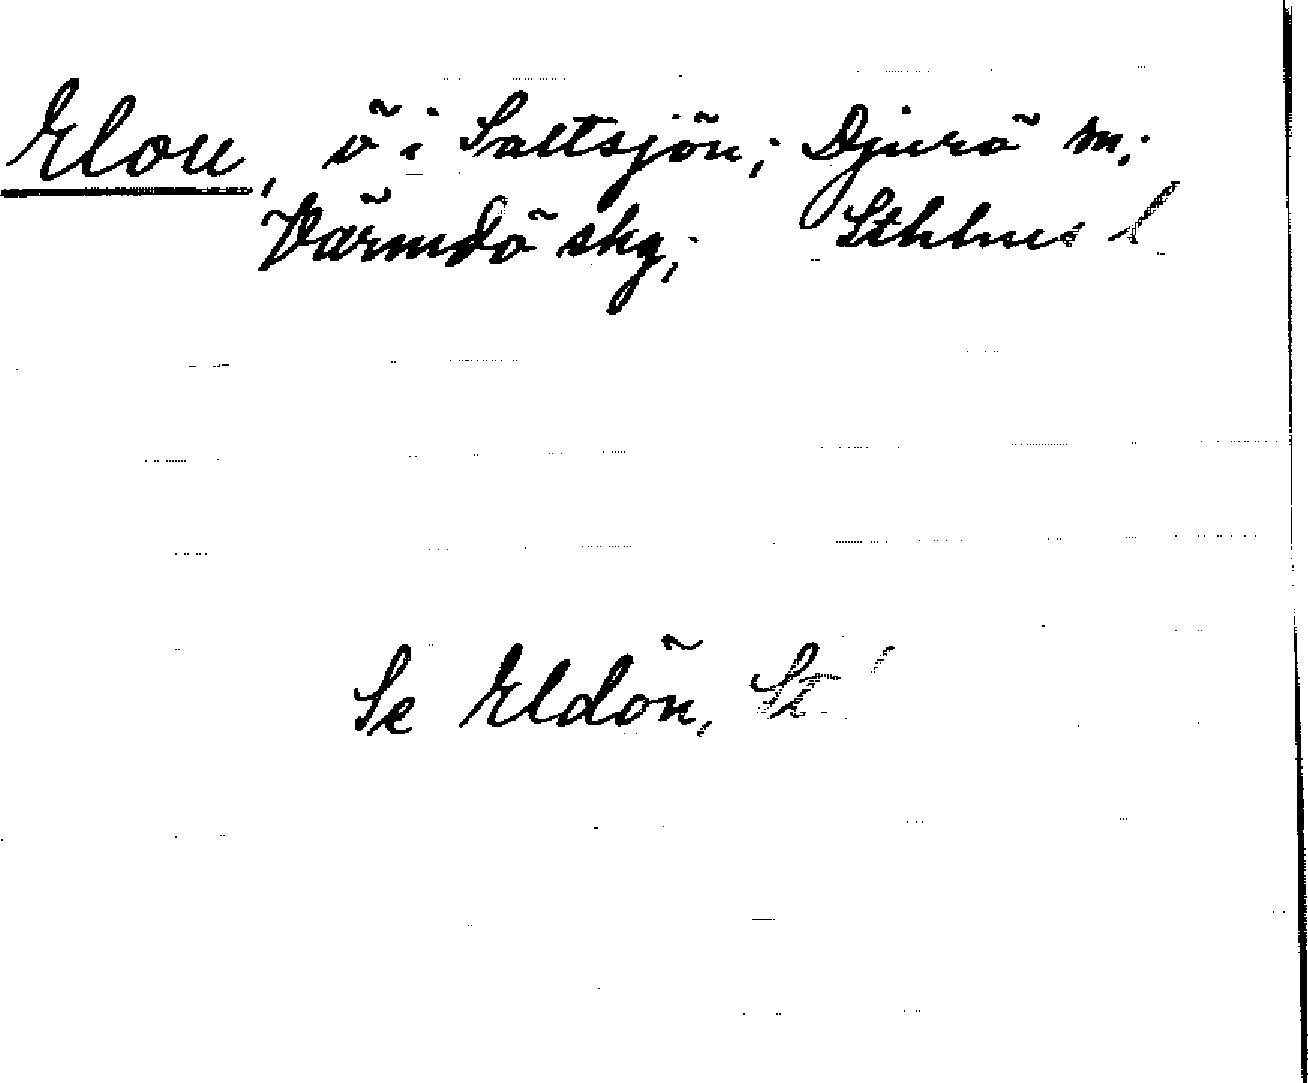 Elon, ö i Saltsjön; Djurö sn;
Värmdö skg; Sthlms l
Se Eldön, St